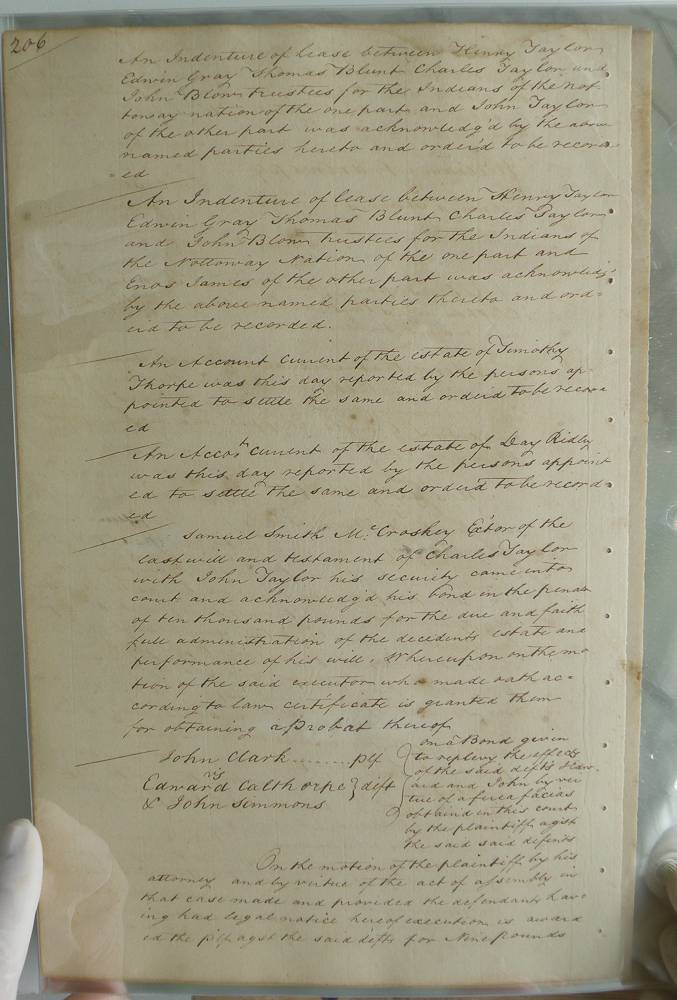 206
An Indenture of lease between Henry Taylor
Edwin Gray Thomas Blunt Charles Taylor and
John Blow trustees for the Indians of the Not
toway nation of the one part and John Taylor
of the other part was acknowledg'd by the above
named parties hereto and order'd to be record=
=ed
An Indenture of lease between Henry Taylor
Edwin Gray Thomas Blunt Charles Taylor
and John Blow trustees for the Indians of
the Nottoway Nation of the one part and
Enos James of the other part was acknowledg'd
by the above named parties thereto and ord=
er'd to be recorded.
An Account Current of the estate of Timothy
Thorpe was this day reported by the persons ap-
pointed to settle the same and order'd to be record
ed
An Acco.t Current of the estate of Day Ridley
was this day reported by the persons appoint
ed to settle the same and order'd to be record=
=ed
Samuel Smith Mc.Croskey Ex'tor of the
last will and testament of Charles Taylor
with John Taylor his security came into
court and acknowledg'd his bond in the penalty
of ten thousand pounds for the due and faith
full administration of the decedents estate and
performance of his will. Whereupon on the mo
tion of the said executor who made oath ac=
cording to law certificate is granted them
for obtaining a Probat thereof
John Clark ........ plf
vs
Edward Calthorpe } deft
& John Simmons
on a Bond given
to replevy the effects
of the said defts Edw-
ard and John by vir
tue of a fierafacias
obtaind in this court
by the plaintiff agst
the said said defents
On the motion of the plaintiff by his
attorney and by virtue of the act of assembly in
that case made and provided the defendants hav
ing had legal notice hereof execution is award
ed the plf agst the said defts for Nine Pounds